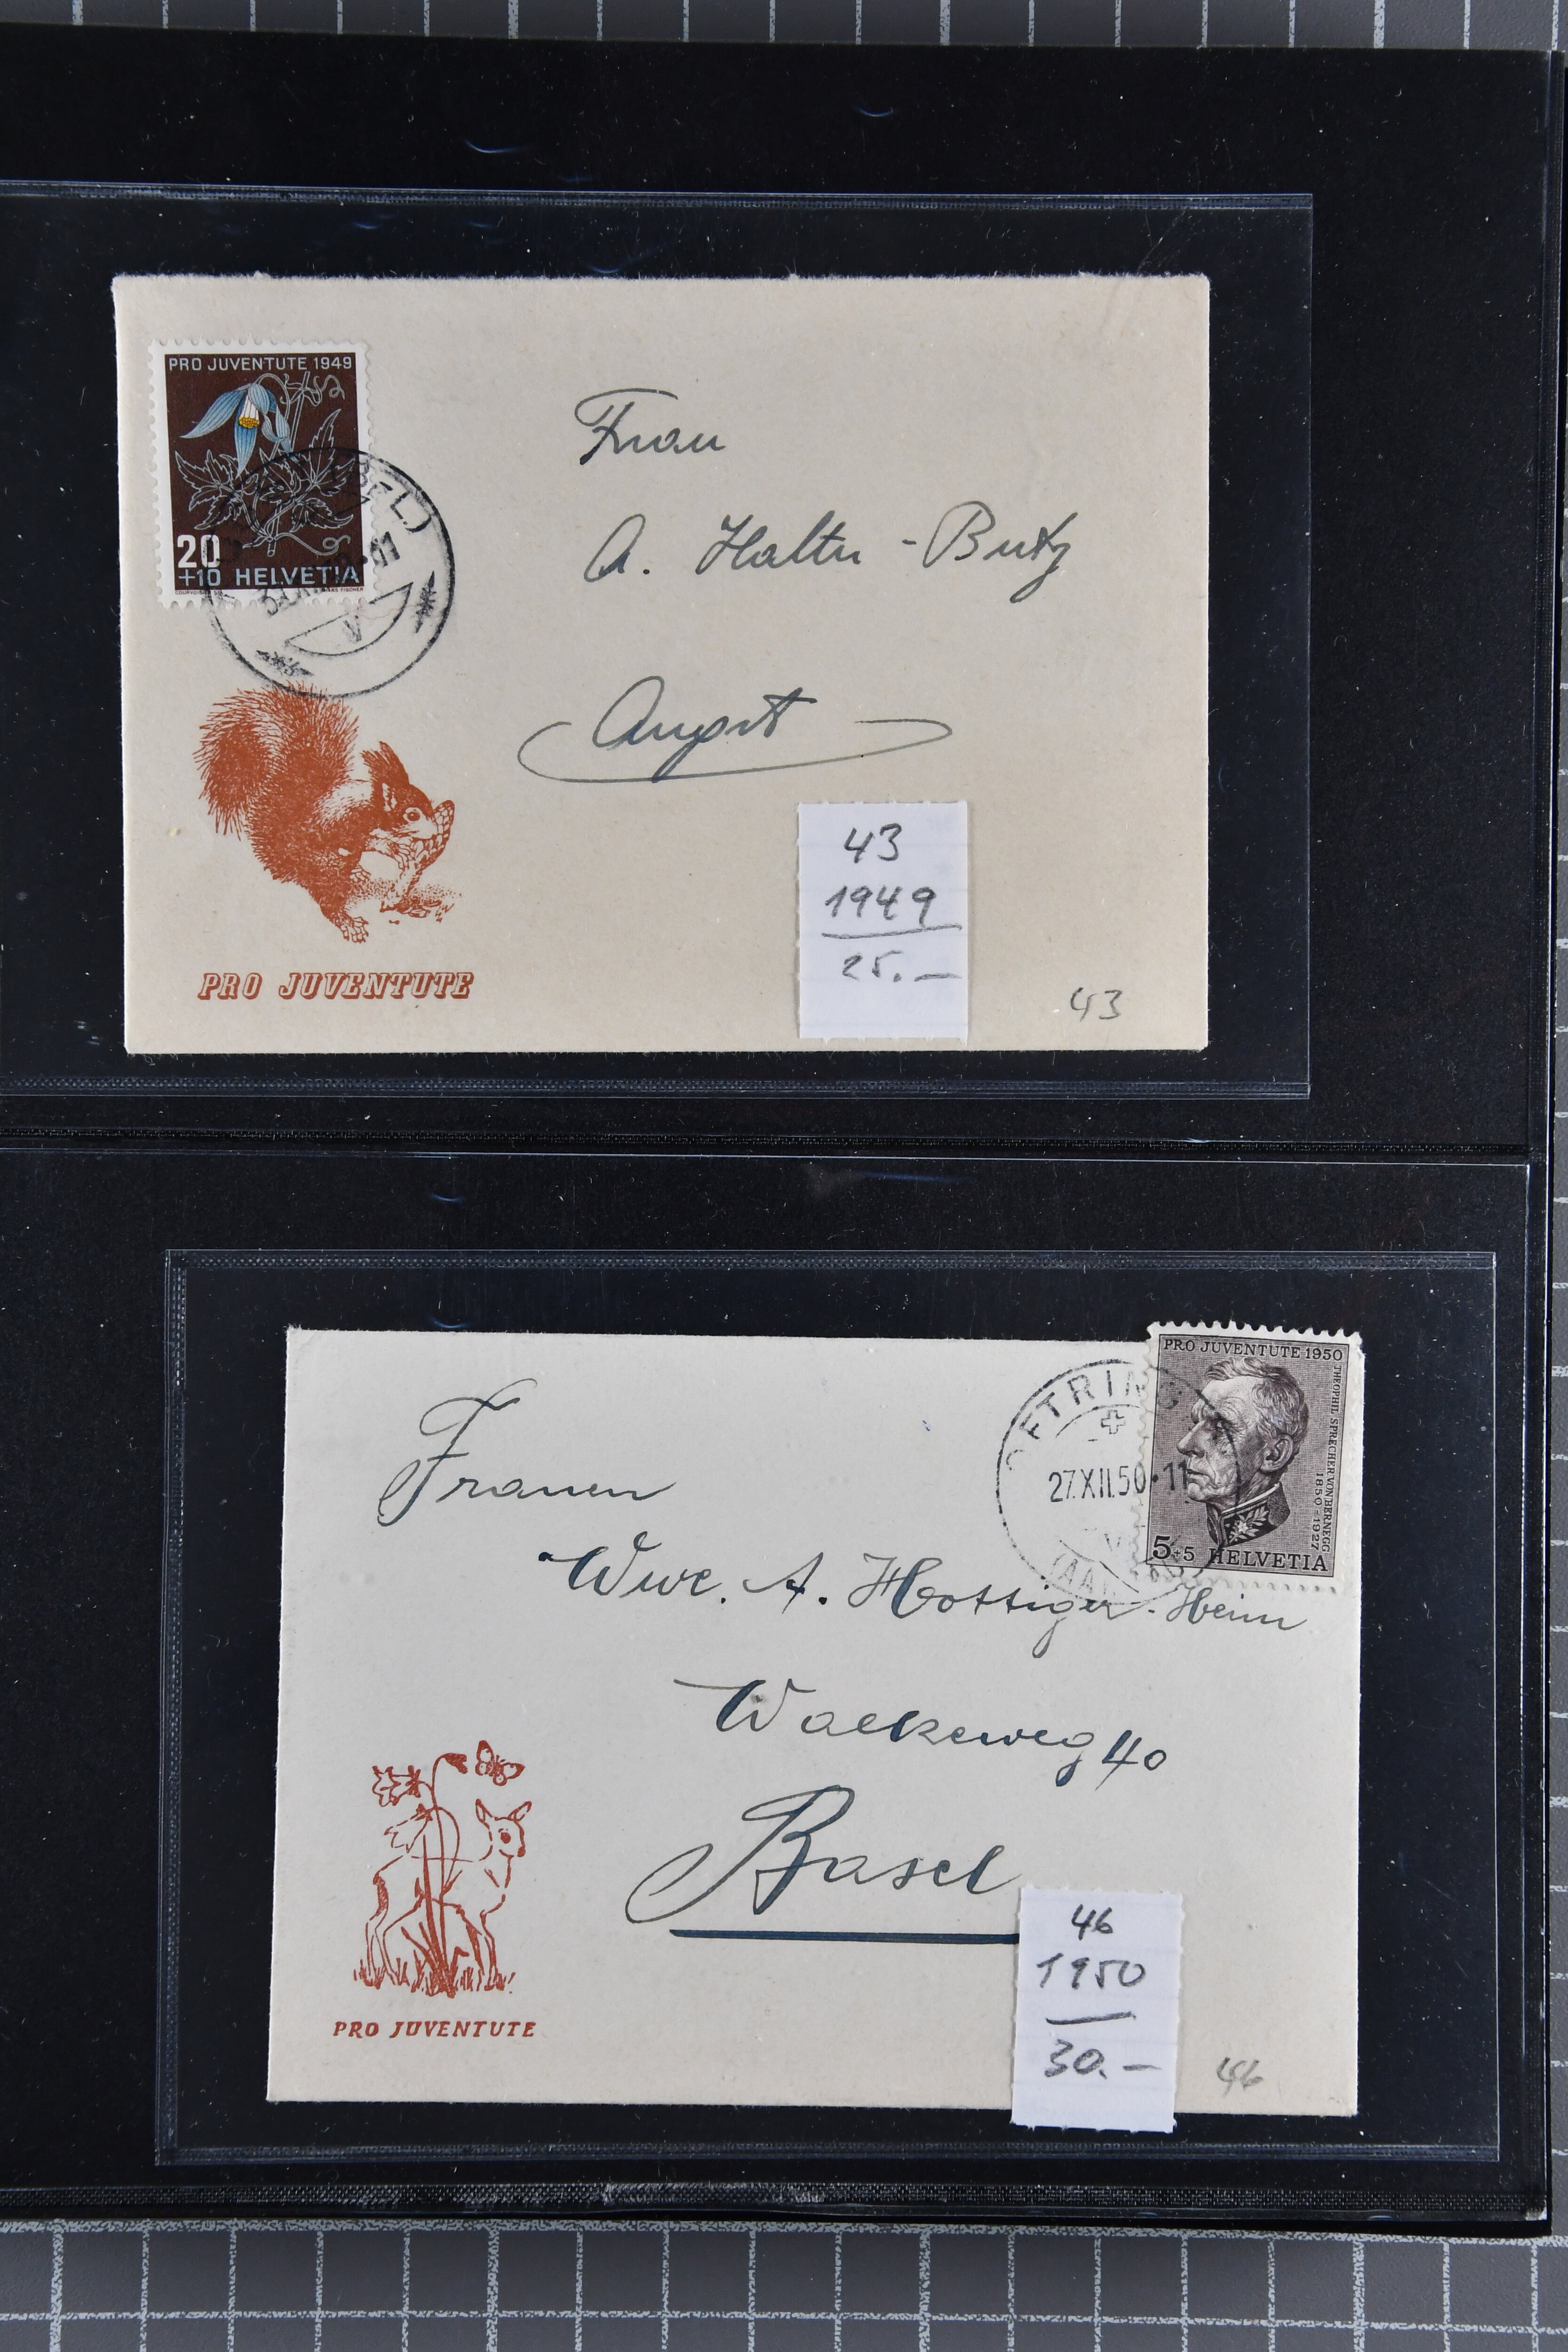 PRO JUVENTUTE 1949
20
+10 HELVETIA
Frau
A. Halter-Butz
Augst
PRO JUVENTUTE
43
1949
25.—
43
PRO JUVENTUTE 1950
THEOPHIL SPRECHER VON BERNEGG
1850-1927
5+5 HELVETIA
27.XII.50·11
V
Frauen
Wwe. A. Hottiger-Heim
40
Basel
PRO JUVENTUTE
46
1950
30.—
46